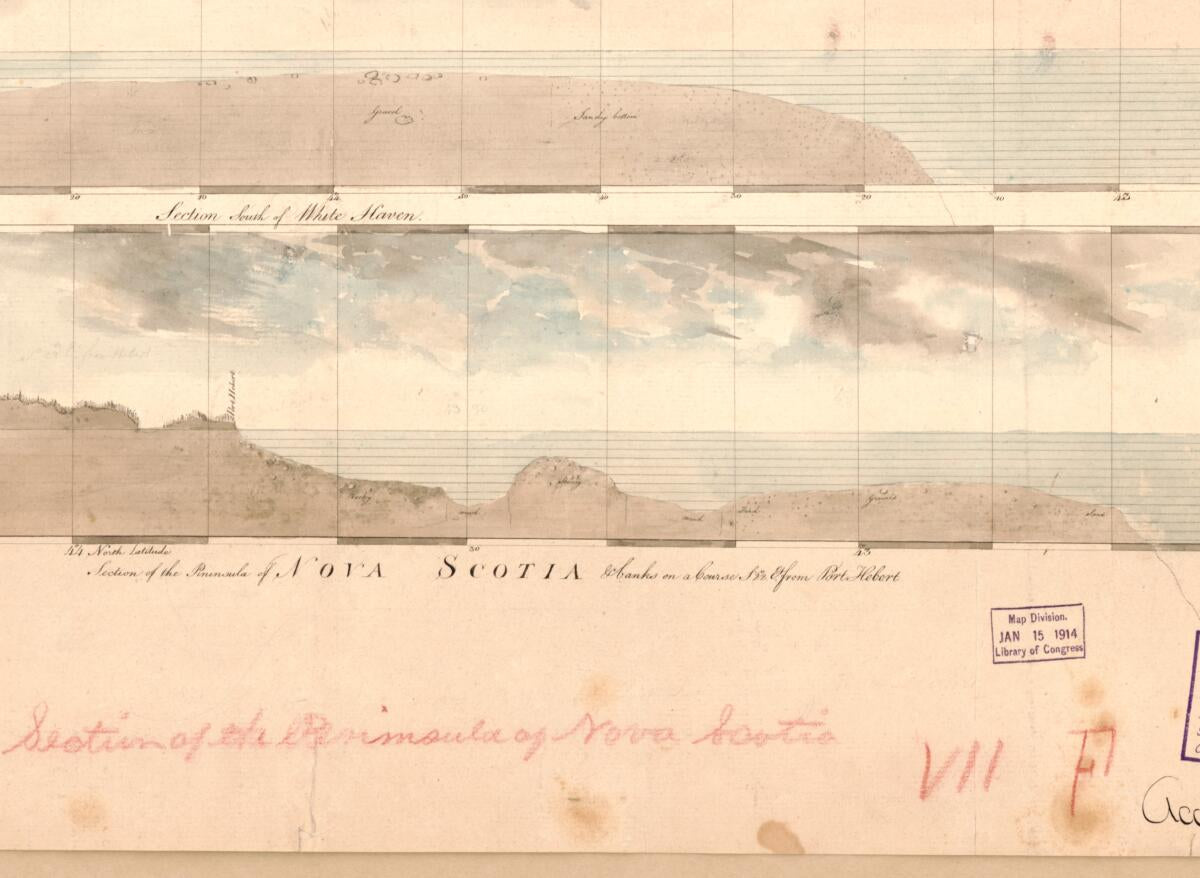 Gravel
Sandy bottom
50 40 44 50 40 30 20 10 43
Section South of White Haven.
Port Hebert
Rocky
mud
Stony
mud
Sand
44 North Latitude
30
43
Section of the Peninsula of NOVA SCOTIA & banks on a Course from Port Hebert
Map Division.
JAN 15 1914
Library of Congress
Section of the Perimsula of Nova Scotia
VII F
Acc